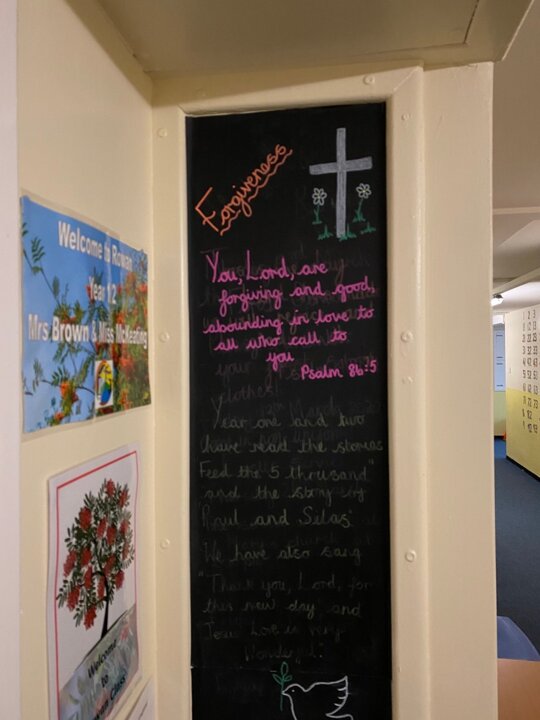 Welcome to Rowan
Year 12
Mrs Brown & Miss McKeating
Welcome
to
Class
Forgiveness
You, Lord, are
forgiving and good,
abounding in love to
all who call to
you
Psalm 86:5
Year one and two
have read the stories
Feed the 5 thousand"
and the story of
'Paul and Silas'
We have also sang
"Thank you, Lord, for
this new day and
Jesus Love is very
Wonderful."